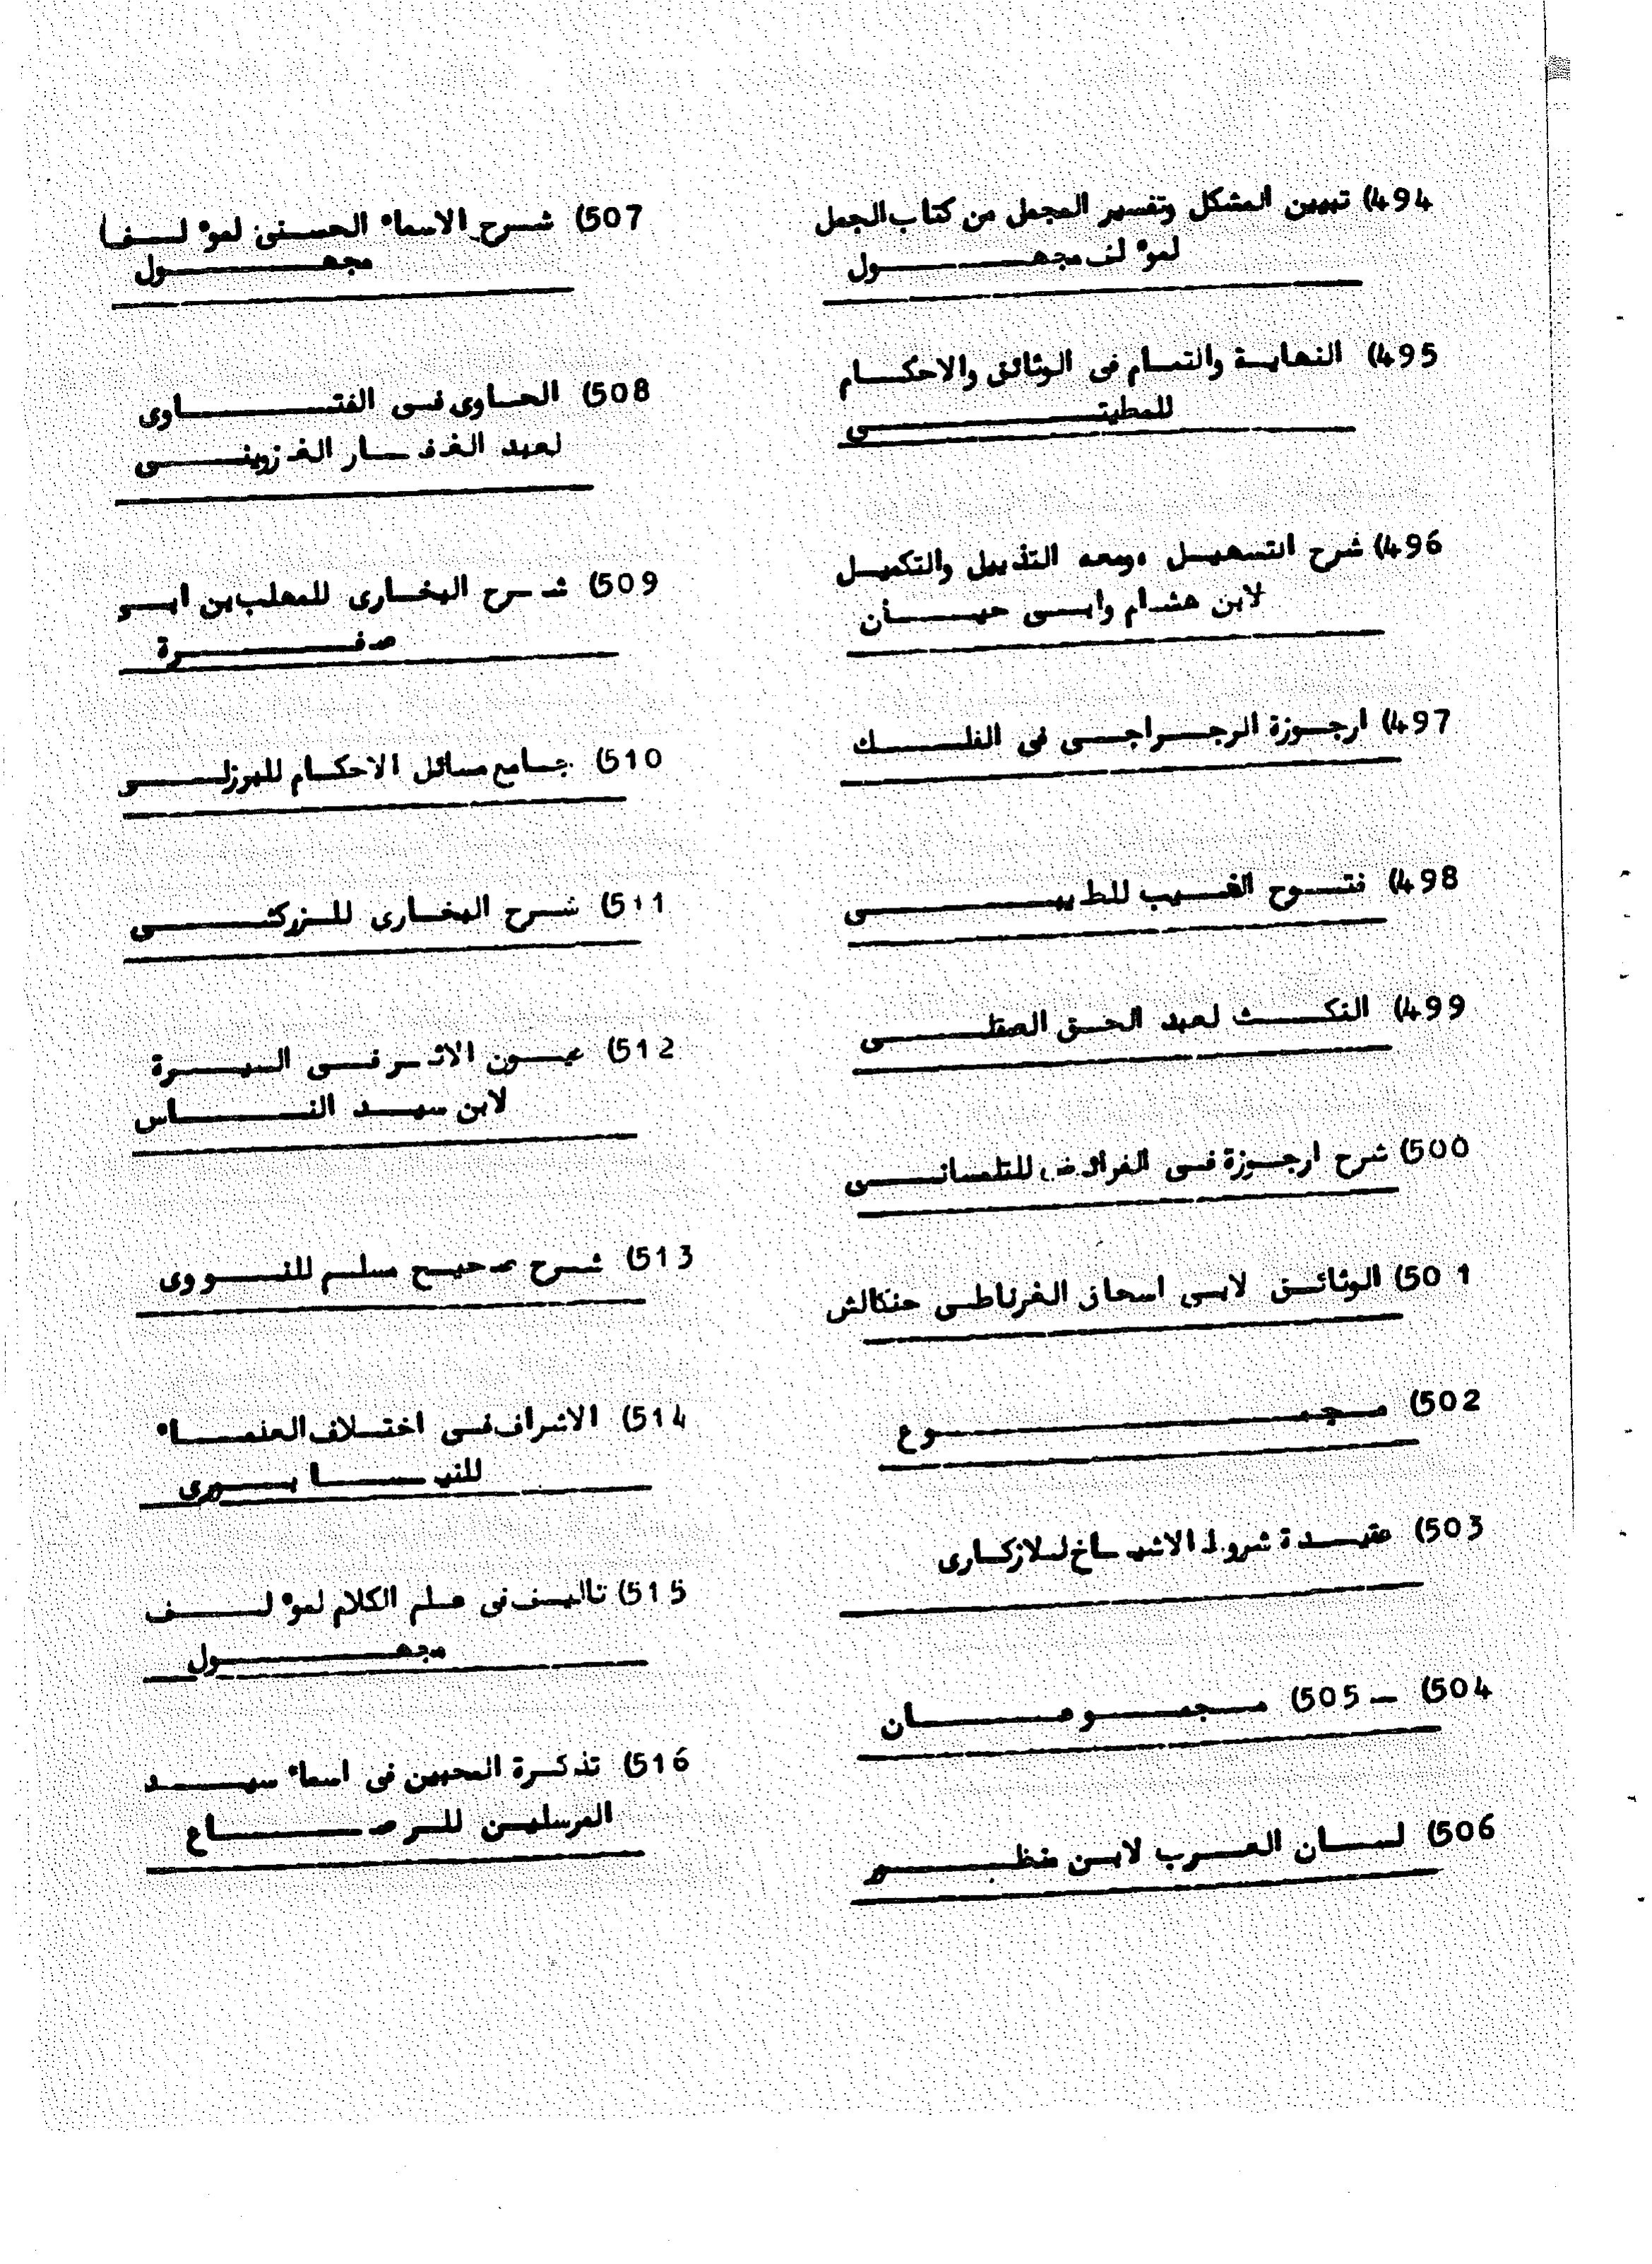 494) تبيين المشكل وتفسير المجمل من كتاب الجمل
لموٴلف مجهول
495) النهاية والتمام فى الوثائق والاحكام
للمطيتى
496) شرح التسهيل ،ومعه التذييل والتكميل
لابن هشام وابى حيأن
497) ارجوزة الرجراجى فى الفلك
498) فتوح الغيب للطيبى
499) النكث لعبد الحق الصقلى
500) شرح ارجوزة فى الفرائض للتلمسانى
501) الوثائق لابى اسحاق الغرناطى حنكالش
502) مجموع
503) عقيدة شروط الاشياخ للازكارى
504) — 505) مجموعان
506) لسان العرب لابن منظور
507) شرح الاسماء الحسنى لموٴلف
مجهول
508) الحاوى فى الفتاوى
لعبد الغفار الغزوينى
509) شرح البخارى للمهلب بن ابى
صفرة
510) جامع مسائل الاحكام للبرزلى
511) شرح البخارى للزركشى
512) عيون الاثر فى السيرة
لابن سيد الناس
513) شرح صحيح مسلم للنووى
514) الاشراف فى اختلاف العلماء
للنيسابورى
515) تاليف فى علم الكلام لموٴلف
مجهول
516) تذكرة المحبين فى اسماء سيد
المرسلين للرصاع